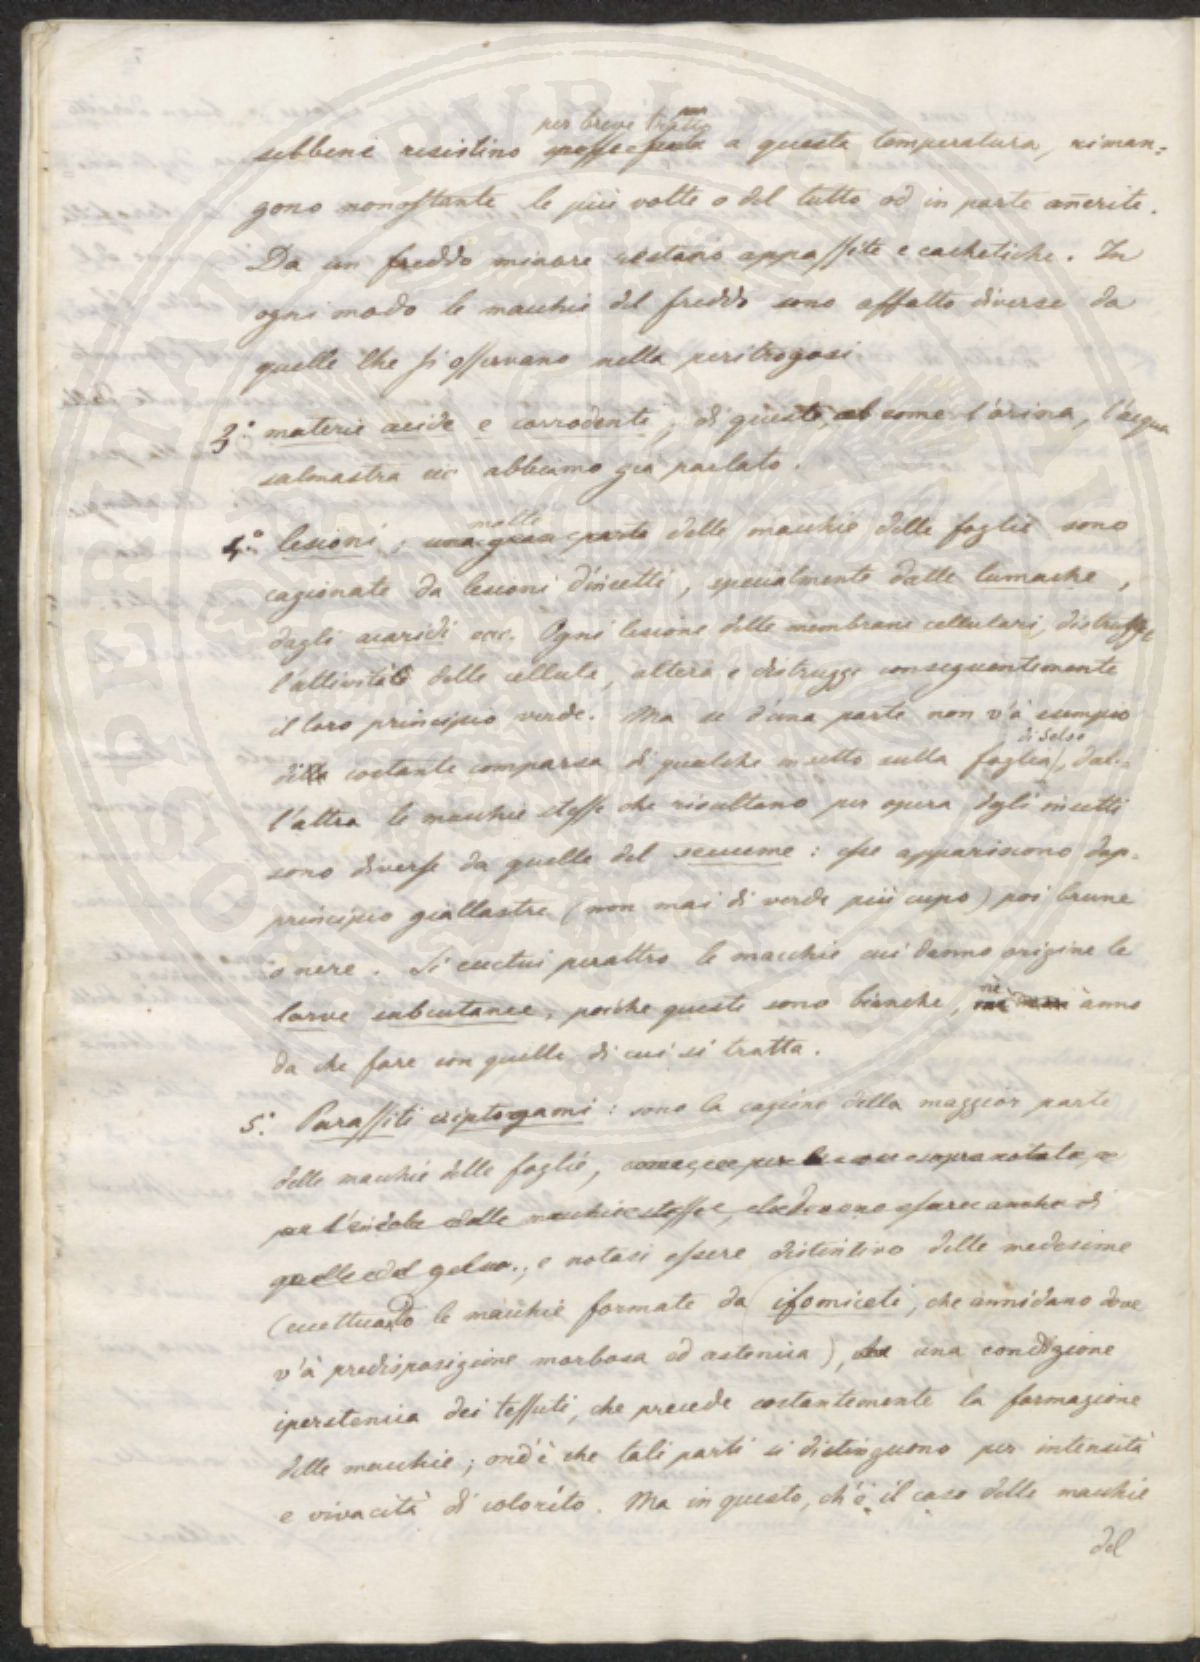 per breve tratto
sebbene resistino a questa temperatura, riman=
gono nonostante le più volte o del tutto od in parte añerite.
Da un freddo minore restano appassite e cachetiche. In
ogni modo le macchie del freddo sono affatto diverse da
quelle che si osservano nella peritrogosi
3.° materie acide e corrodenti; di queste, come l'orina, l'acqua
salmastra ecc abbiamo già parlato.
molte
4.° lesioni; una gran parte delle macchie delle foglie sono
cagionate da lesioni d'insetti, specialmente dalle lumache,
dagli acaridi ecc. Ogni lesione delle membrane cellulari, distrugge
l'attività delle cellule, altera e distrugge conseguentemente
il loro principio verde. Ma se d'una parte non v'à esempio
di gelso
di costante comparsa di qualche insetto sulla foglia, dal=
l'altra le macchie stesse che risultano per opera degli insetti
sono diverse da quelle del seccume: esse appariscono dap=
principio giallastre (non mai di verde più cupo) poi brune
o nere. Si eccetui peraltro le macchie cui danno origine le
nè
larve subcutanee, poichè queste sono bianche, ànno
da che fare con quelle di cui si tratta.
5.° Parassiti criptogami: sono la cagione della maggior parte
delle macchie delle foglie, come, e per le cose sopra notate, e
per l'indole delle macchie stesse, che devono essere anche di
quelle del gelso., e notasi essere distintivo delle medesime
(eccettuando le macchie formate da ifomiceti, che annidano dove
v'à predisposizione morbosa od astenica), una condizione
iperstenica dei tessuti, che precede costantemente la formazione
delle macchie; ond'è che tali parti si distinguono per intensità
e vivacità di colorito. Ma in questo, ch'è il caso delle macchie
del